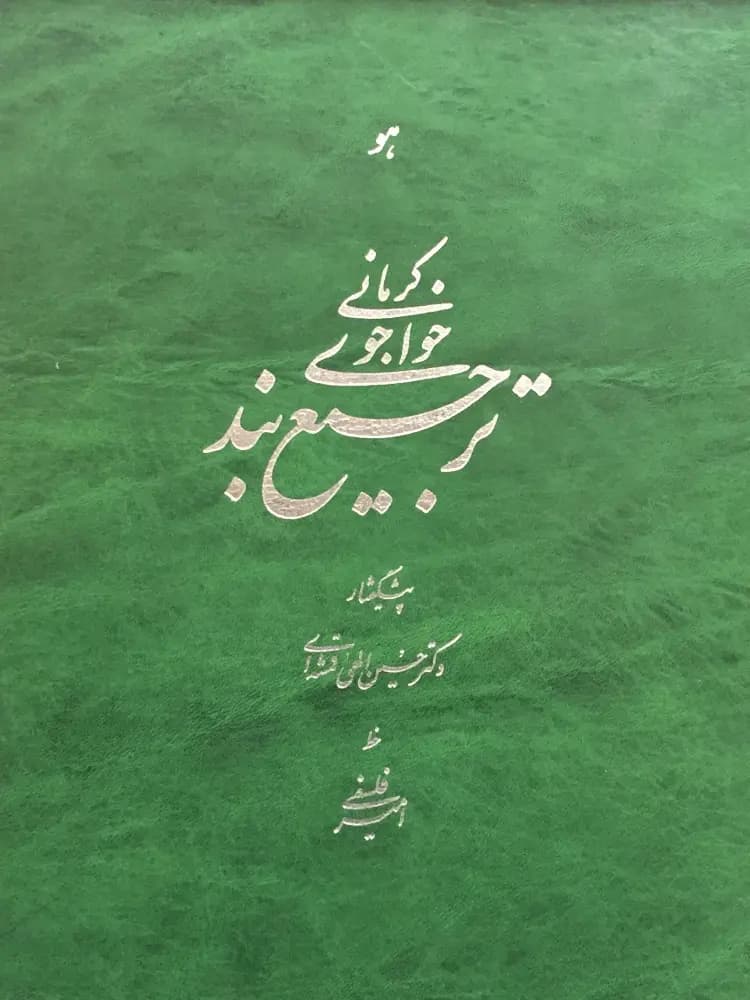 هو
ترجیع بند
خواجوی
کرمانی
پیشگفتار
دکتر حسین الهی قمشه‌ای
خط
امیر فلسفی